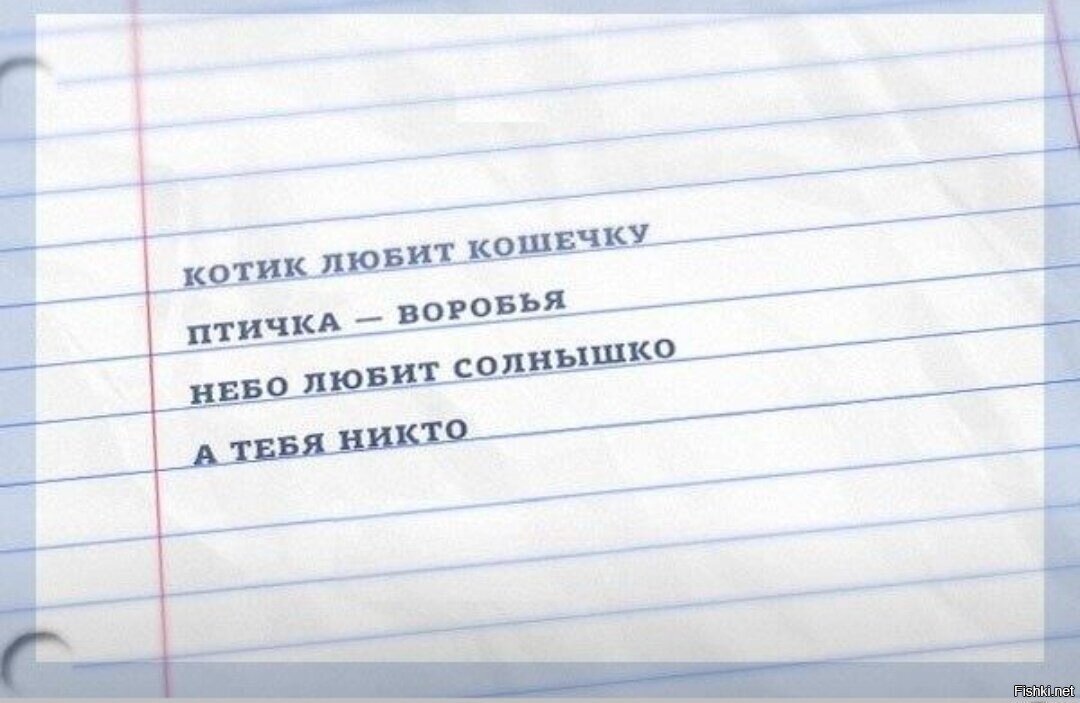 КОТИК ЛЮБИТ КОШЕЧКУ
ПТИЧКА — ВОРОБЬЯ
НЕБО ЛЮБИТ СОЛНЫШКО
А ТЕБЯ НИКТО
Fishki.net